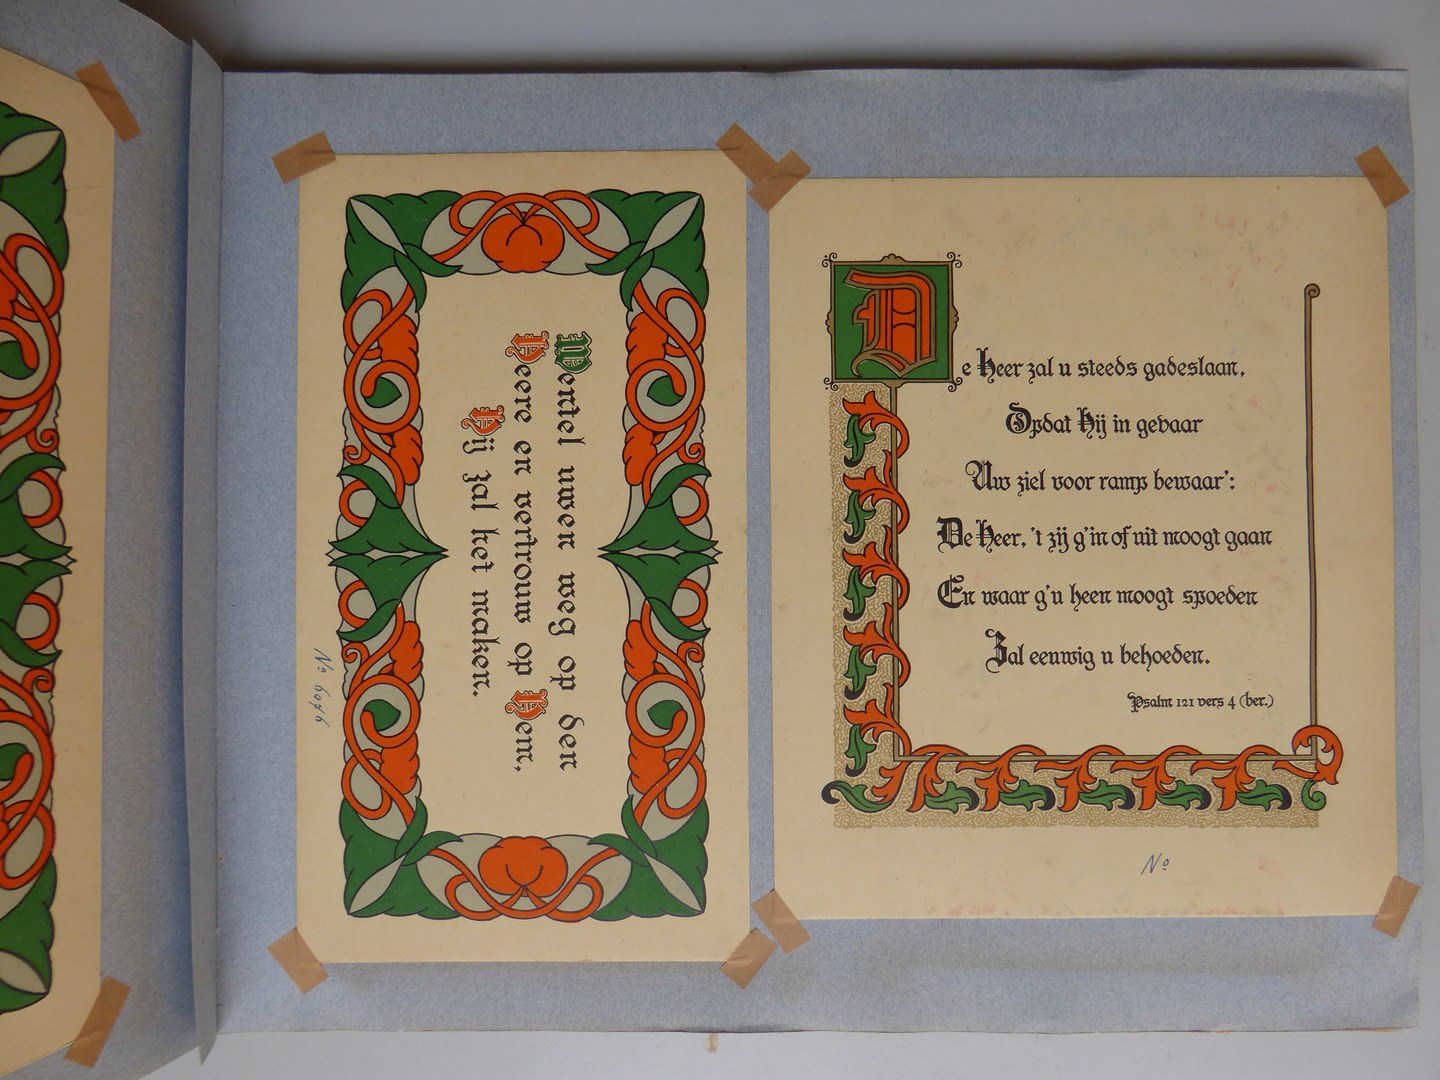 Wentel uwen weg op den
Heere en vertrouw op Hem,
Hij zal het maken.
No 6076
De Heer zal u steeds gadeslaan,
Opdat Hij in gevaar
Uw ziel voor ramp bewaar':
De Heer, 't zij g'in of uit moogt gaan
En waar g'u heen moogt spoeden
Zal eeuwig u behoeden.
Psalm 121 vers 4 (ber.)
No